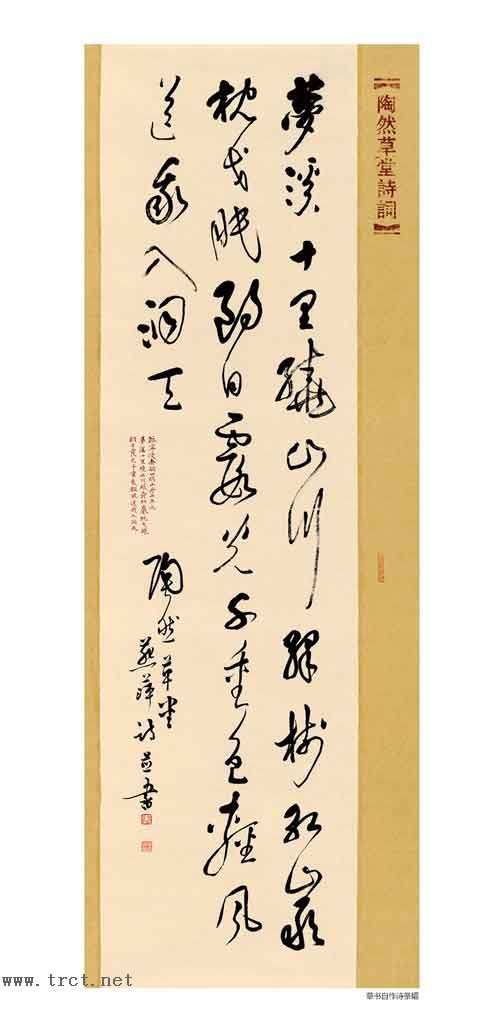 【陶然草堂詩詞】
夢溪十里繞山川綠樹紅巖
枕戈眠朝日霞光千重色輕風
送我入洞天
陶然草堂
燕萍詩并書
www.trct.net
草书自作诗条幅